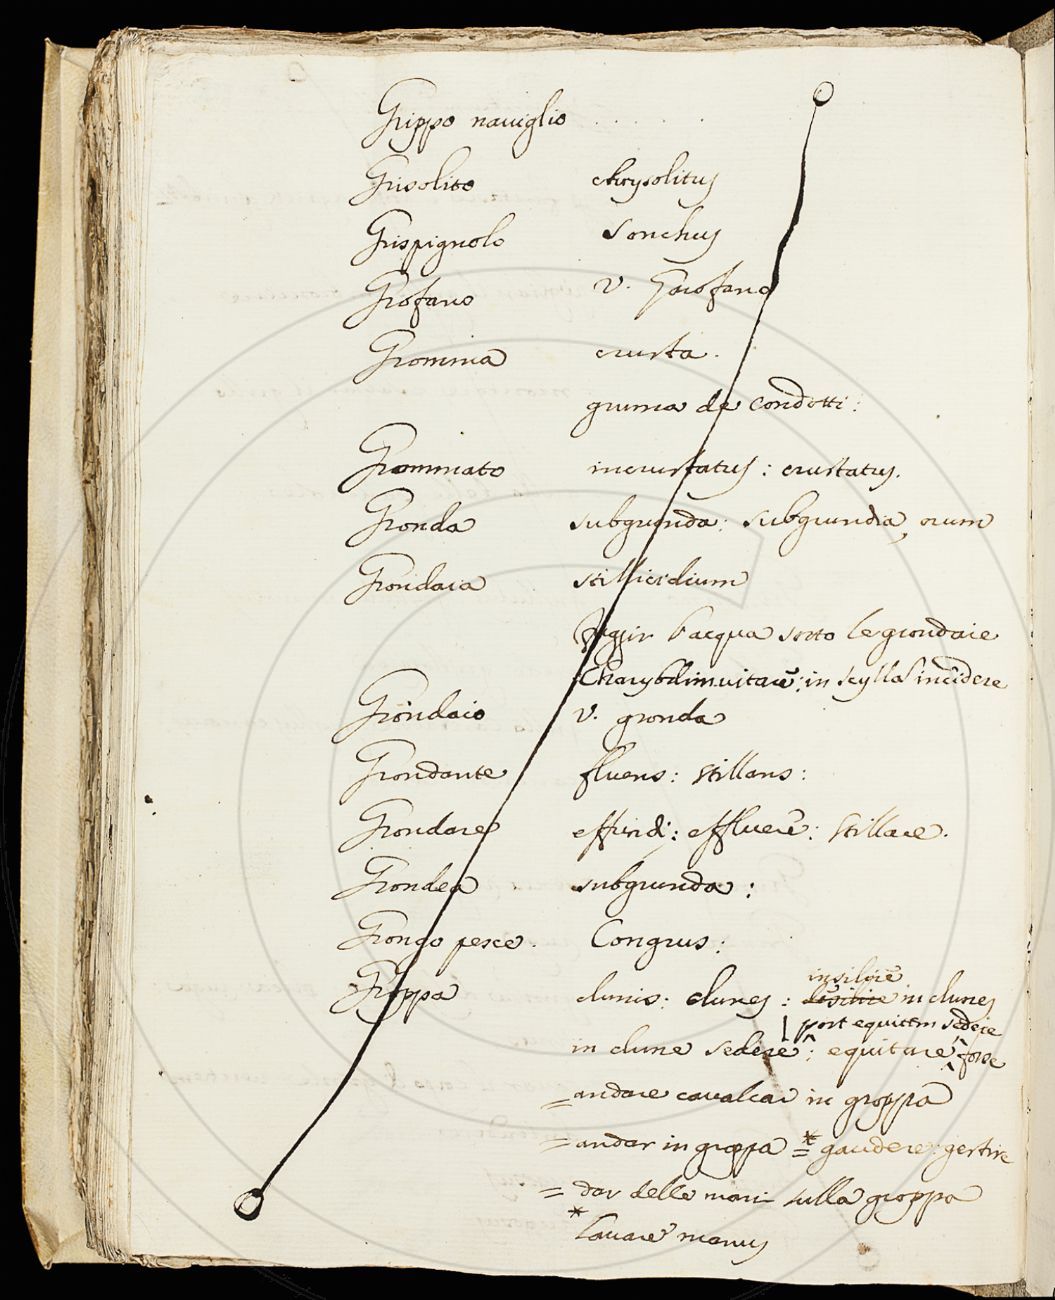 Grippo naviglio . . . .
Grisolito chrysolitus
Grispignolo Sonchus
Grofano v. Garofano
Gromma crusta.
gruma de condotti:
Grommato incrustatus: crustatus.
Gronda subgrunda: subgrundia, orum
Grondaia stillicidium
fuggir l'acqua sotto le grondaie
Charybdim vitare: in scylla incidere
Grondaio v. gronda
Grondante fluens: stillans:
Grondare effundi: effluere: stillare.
Grondea subgrunda:
Grongo pesce. Congrus:
insilire
Groppa clunis: clunes: in clunes
post equitem sedere
in clune sedere: equitare forse
=andare cavalcar in groppa
=andar in groppa =* gaudere: gestire
= dar delle mani sulla groppa
* lavare manus